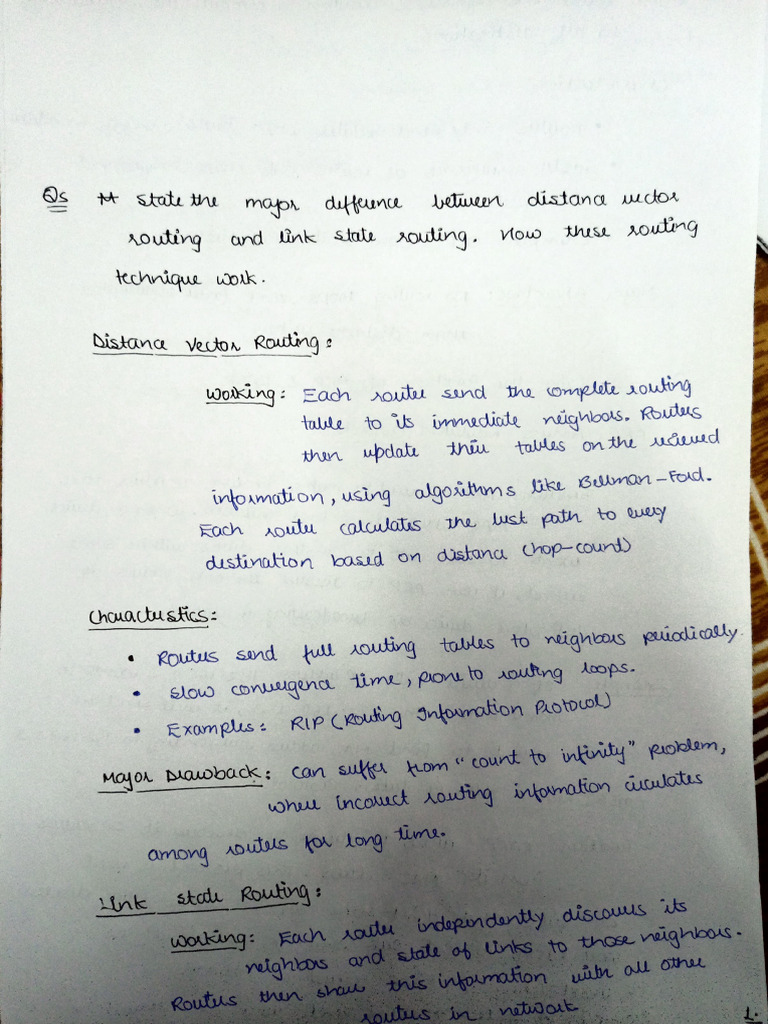 Qs ** State the major difference between distance vector
routing and link state routing. How these routing
technique work.
Distance Vector Routing:
Working: Each router send the complete routing
table to its immediate neighbors. Routers
then update their tables on the recieved
information, using algorithms like Bellman-Ford.
Each router calculates the best path to every
destination based on distance (hop-count)
Characteristics:
• Routers send full routing tables to neighbors periodically.
• Slow convergence time, prone to routing loops.
• Examples: RIP (Routing Information Protocol)
Major Drawback: Can suffer from "count to infinity" problem,
where incorrect routing information circulates
among routers for long time.
Link State Routing:
Working: Each router independently discovers its
neighbors and state of links to those neighbors.
Routers then share this information with all other
routers in network
1.